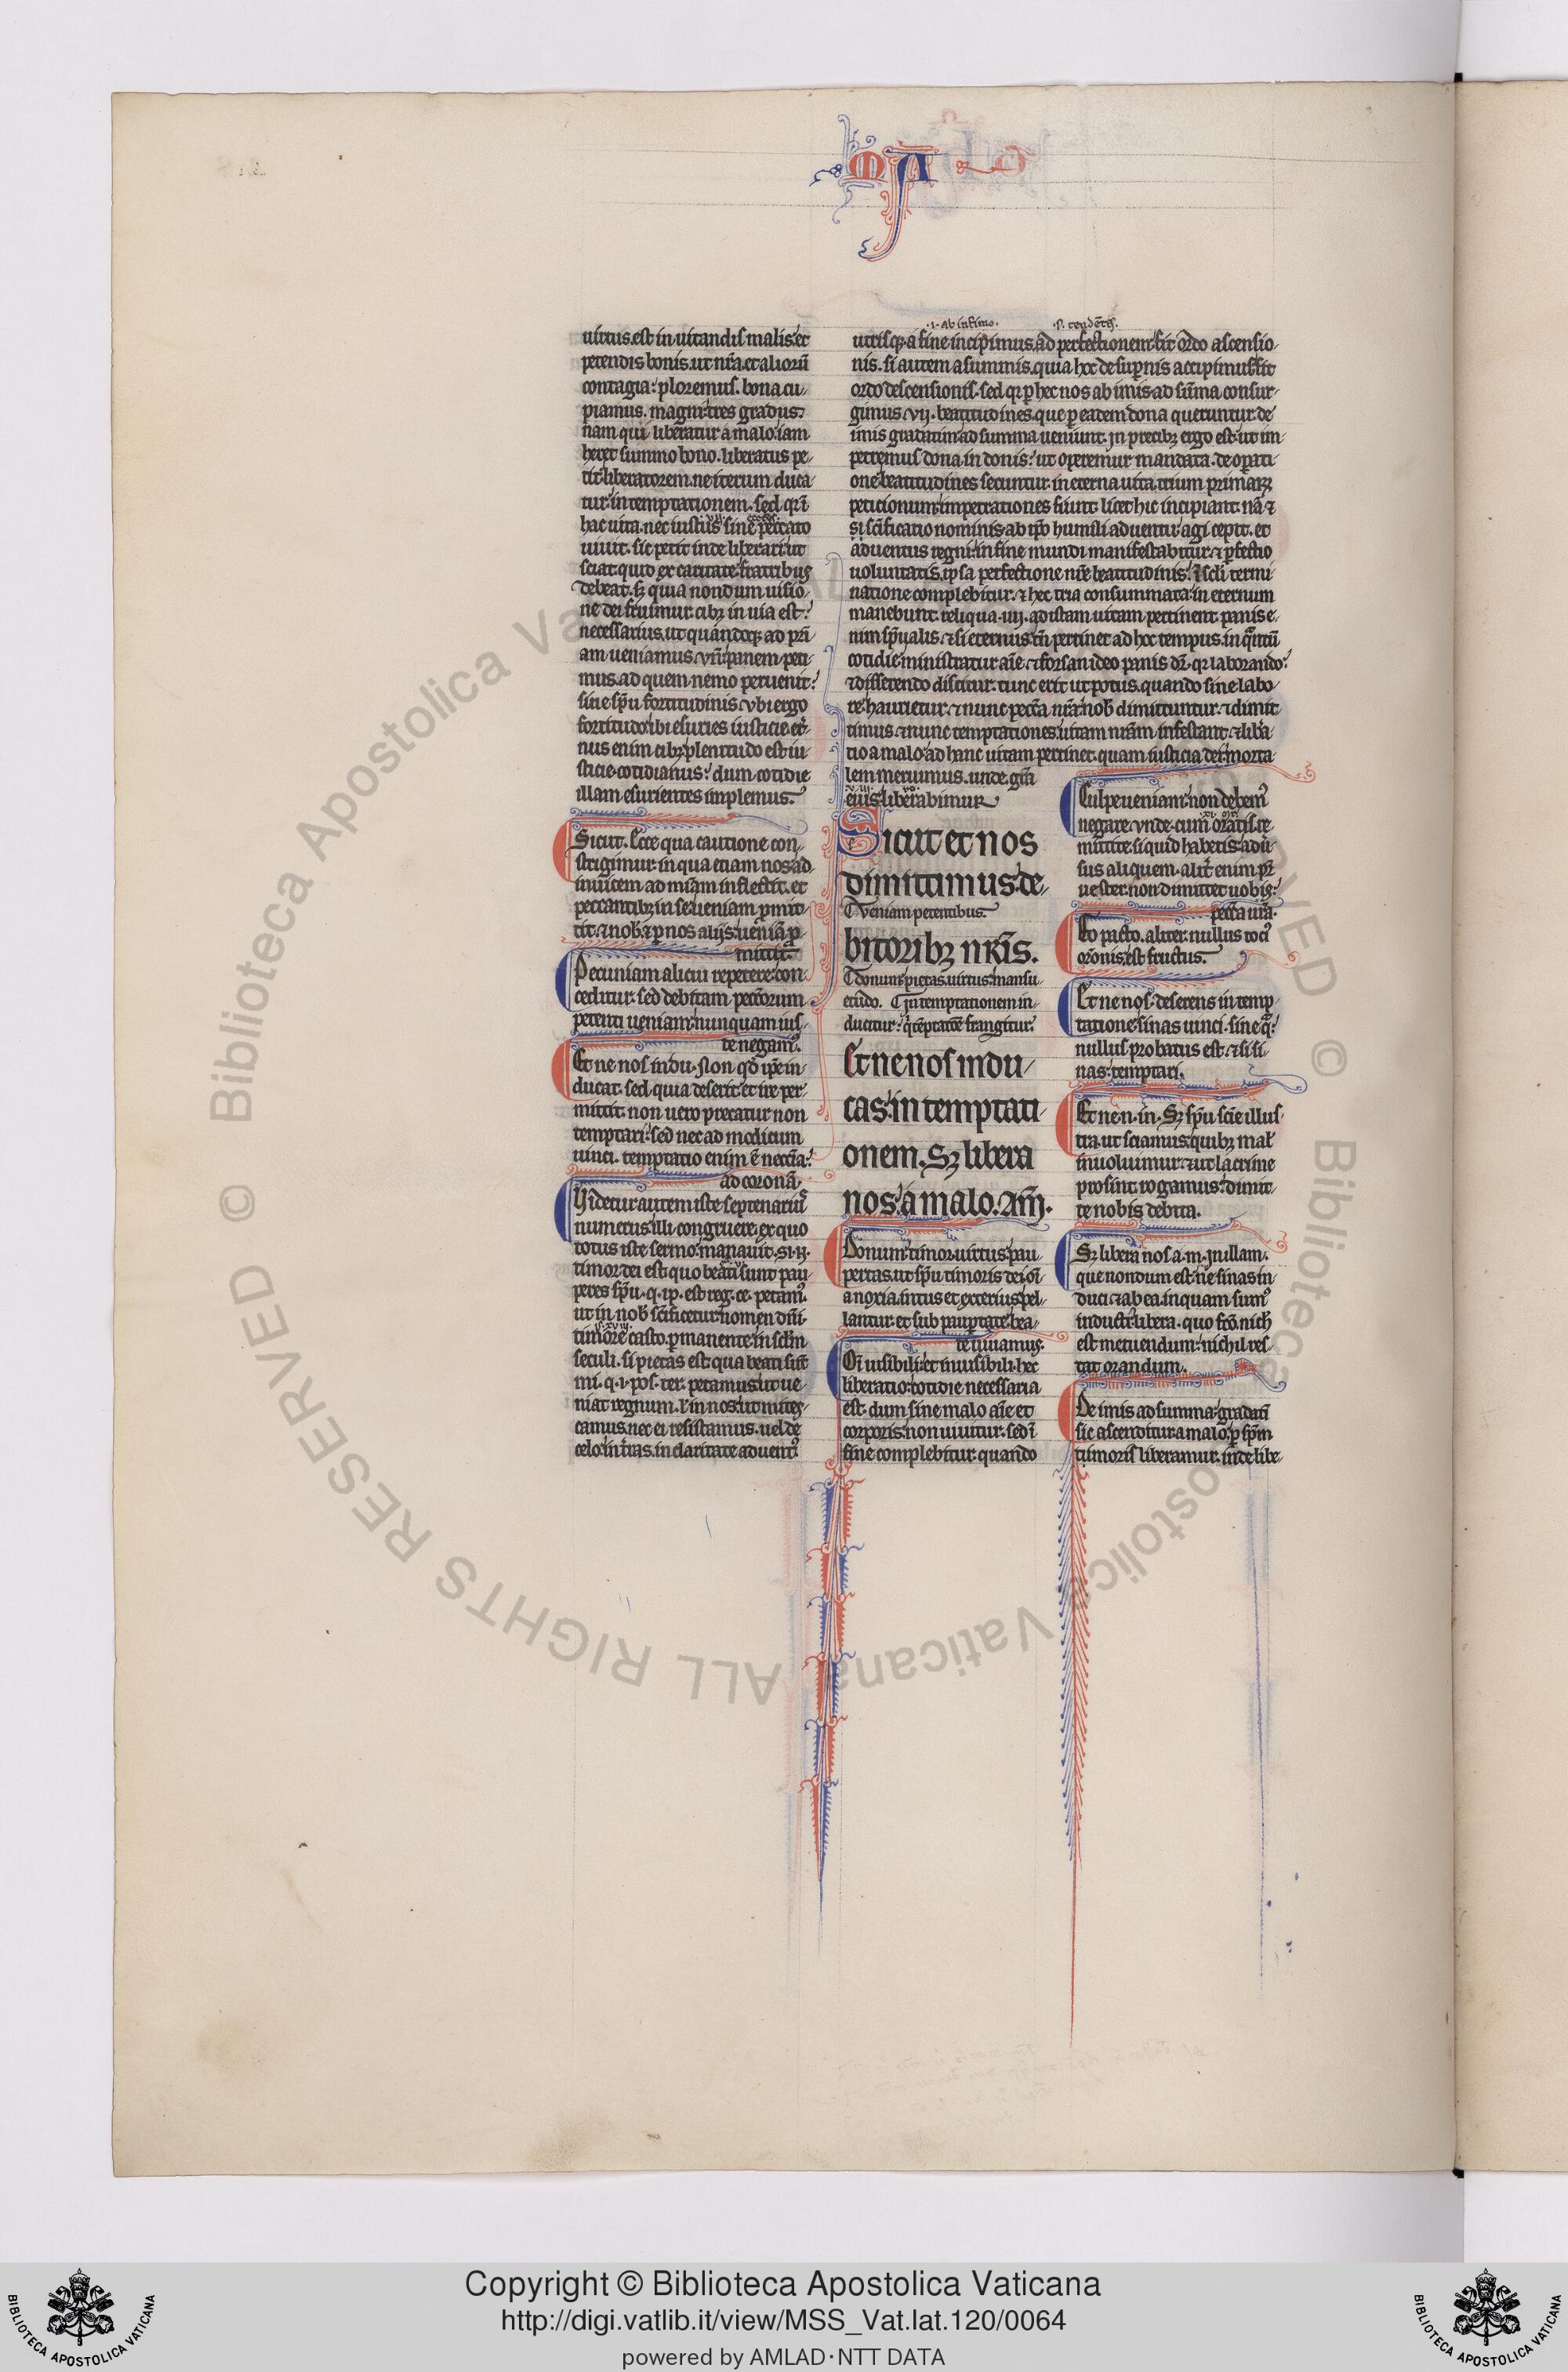 MA
uirtus. est in uitandis malis. et
petendis bonis. ut nr̃a. et alioru᷈
contagia: ploremus. bona cu-
piamus. magni: tres gradus.
nam qui liberatur a malo: iam
heret summo bono. liberatus pe-
tit liberatorem. ne iterum duca-
tur in temptationem. sed qr̃ ĩ
hac uita. nec iustus sine peccato
uiuit. sic petit inde liberari: ut
sciat: quid ex caritate fratribus
debeat. sꝫ quia nondum uisio-
ne dei fruimur. cibꝫ in uia est
necessarius. ut quandoqꝫ ad pr̃i-
am ueniamus. vñ: panem peti-
mus. ad quem nemo peruenit
sine spũ fortitudinis. vbi ergo
fortitudo: ibi esuries iusticie. et̾-
nus enim cibꝫ plenitudo est iu-
sticie. cotidianus: dum cotidie
illam esurientes implemus.
Sicut. Ecce qua cautione con-
stigimur. in qua etiam nos ad
inuicem ad mĩam inflectit. et
peccantibꝫ in se ueniam ꝓmit-
tit. ⁊ nob̾. ⁊ ꝑ nos alijs: ueniã ꝓ-
mittit.
Pecuniam alicui repetere: con-
ceditur. sed debitam peccorum
petenti ueniam: nunquam ius-
te negam̾.
Et ne nos indu. Non qd̾ ip̃e in-
ducat. sed quia deserit: et ire per-
mittit. non uero precatur non
temptari: sed nec ad modicum
uinci. temptatio enim ẽ neccĩa:
ad coronã.
Videtur autem iste septenarius
numerus: illi congruere. ex quo
totus iste sermo: manauit. Si. N.
timor dei est quo beati sunt pau-
peres spũ. q. ip̃. est reg. ce. petam̾.
ut in nob̾ sc̃ificetur nomen dñi.
timore casto. ꝑmanente. in sclm
seculi. si pietas est: qua beati sũt
mi. q. i. pos. ter. petamus: ut ue-
niat regnum. l̾ in nos: ut mites-
camus. nec ei resistamus. uel de
celo: in t̾ras. in claritate aduent̾
.i. ab infimo. .s. tendẽtes.
utrisqꝫ. a fine incipimus. ad perfectionem: fit ordo ascensio-
nis. si autem a summis. quia hoc de sup̾nis accipimus: fit
ordo descensionis. sed qr̃ ꝑ hec nos ab imis ad sũma consur-
gimus. vij. beatitudines. que ꝑ eadem dona queruntur: de
imis gradatim ad summa ueniunt. in precibꝫ ergo est: ut im-
petremus dona. in donis: ut operemur mandata. de oꝑati-
one beatitudines secuntur. in eterna uita. trium primarꝫ
peticionum: impetrationes fiunt. licet hic incipiant. nã ⁊
si sc̃ificatio nominis ab ip̃o humili aduentu: agi cepit. et
aduentus regni: in fine mundi manifestabitur. ⁊ ꝑfectio
uoluntatis. ip̃sa perfectione nr̃e beatitudinis. ⁊ scl̾i termi-
natione complebitur. ⁊ hec tria consummata: in eternum
manebunt. reliqua. iiij. ad istam uitam pertinent. panis e-
nim sp̃ualis. ⁊ si eternus. tñ pertinet ad hoc tempus. in q̃ntũ
cotidie ministratur aĩe. ⁊ forsan ideo panis dr̃. qr̃ laborando
⁊ disserendo discitur. tunc erit ut potus. quando sine labo-
re haurietur. ⁊ nunc pecc̃a nr̃a: nob̾ dimittuntur. ⁊ dimit-
timus. ⁊ nunc temptationes: uitam nr̃am infestant. ⁊ lib̾a-
tio a malo: ad hanc uitam pertinet. quam iusticia dei: morta-
lem meruimus. unde. gr̃a
eius: liberabimur.
Sicut et nos
dimittimus: de-
Veniam petentibus.
bitoribꝫ nr̃is.
Donum: pietas. uirtus: mansu-
etudo. In temptationem in-
ducitur: q̾ tẽptatõe frangitur.
Et ne nos indu-
cas: in temptati-
onem. Sꝫ libera
nos: a malo. Am̃.
Donum: timor. uirtus: pau-
pertas. ut spũ timoris dei: oĩ-
a noxia. intus et exterius: pel-
lantur. et sub pauꝑtate: bea-
te uiuamus.
Oĩ uisibili: et inuisibili. hec
liberatio: cotidie necessaria
est. dum sine malo aĩe et
corporis: non uiuitur. sed ĩ
fine complebitur. quando
Culpe ueniam: non debem̾
negare. vnde. cum oratis. re-
mittite si quid habetis: adũ-
sus aliquem. alit̾ enim: pr̃
uester: non dimittet uobis:
pecc̃a ur̃a.
Eo pacto. aliter: nullus toci̾
or̃onis: est fructus.
Et ne nos. deserens in temp-
tatione: sinas uinci. sine q̃
nullus probatus est. ⁊ si si-
nas: temptari.
Et ne n. in. Sꝫ spũ scĩe illus-
tra. ut sciamus: quibꝫ mal̾
inuoluimur. ⁊ ut lacrime
prosint: rogamus: dimit-
te nobis debita.
Sꝫ libera nos a. m. in illam.
que nondum est: ne sinas in-
duci. ⁊ ab ea. in quam sum̾
inducti: libera. quo fc̃o. nich̾
est metuendum: nichil res-
tat orandum.
De imis ad summa: gradatĩ
sic ascenditur. a malo. ꝑ sp̃m
timoris liberamur. inde libe-
Copyright © Biblioteca Apostolica Vaticana
http://digi.vatlib.it/view/MSS_Vat.lat.120/0064
powered by AMLAD·NTT DATA